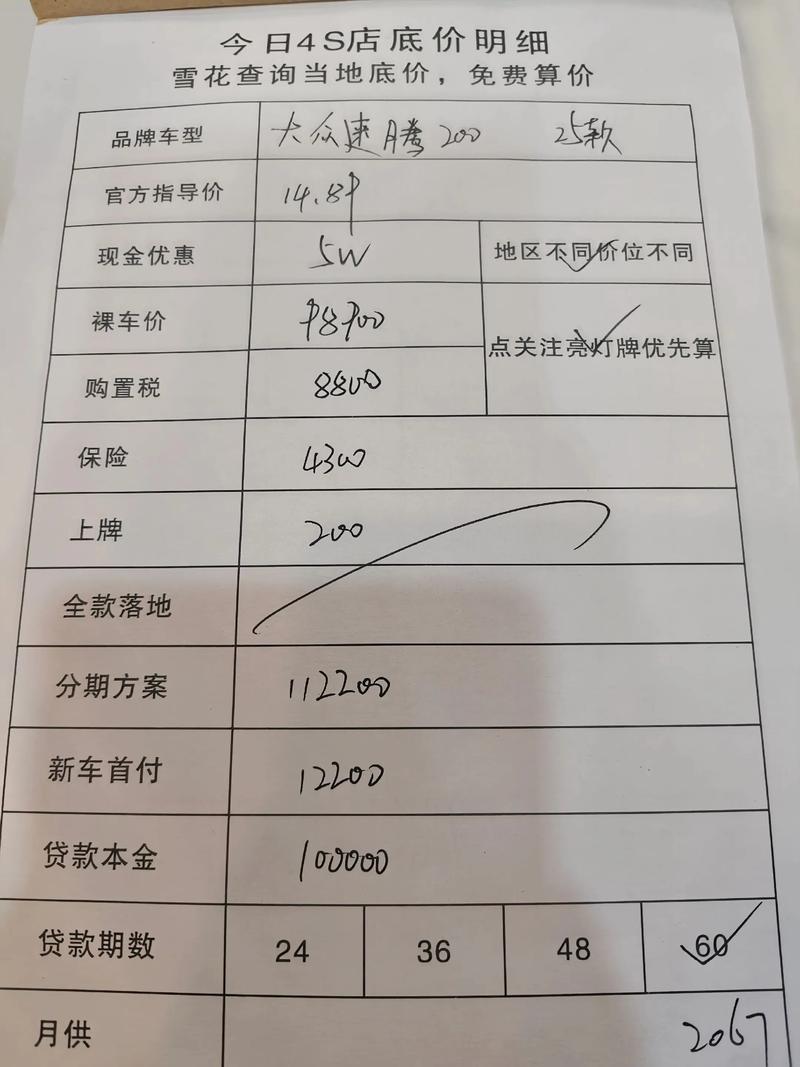 今日4S店底价明细
雪花查询当地底价，免费算价
品牌车型 大众速腾200 25款
官方指导价 14.89
现金优惠 5W 地区不同价位不同
裸车价 98900 点关注亮灯牌优先算
购置税 8800
保险 4300
上牌 200
全款落地
分期方案 112200
新车首付 12200
贷款本金 100000
贷款期数 24 36 48 60
月供 2067